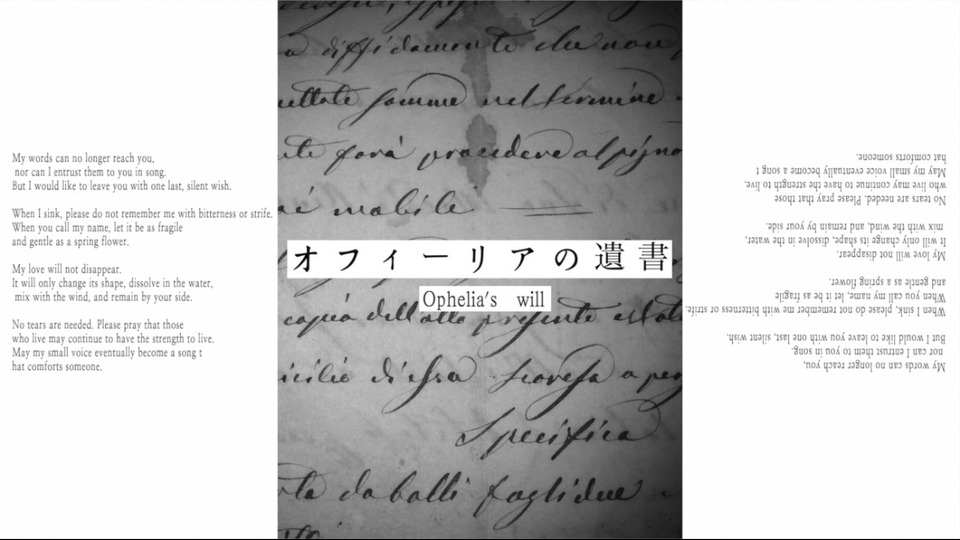 My words can no longer reach you,
nor can I entrust them to you in song.
But I would like to leave you with one last, silent wish.
When I sink, please do not remember me with bitterness or strife.
When you call my name, let it be as fragile
and gentle as a spring flower.
My love will not disappear.
It will only change its shape, dissolve in the water,
mix with the wind, and remain by your side.
No tears are needed. Please pray that those
who live may continue to have the strength to live.
May my small voice eventually become a song t
hat comforts someone.
diffidamente che non
somme nel termine
farà procedere al pigno
mobile
オフィーリアの遺書
Ophelia's will
copia dell'atto presente
Specifica
da balli
My words can no longer reach you,
nor can I entrust them to you in song.
But I would like to leave you with one last, silent wish.
When I sink, please do not remember me with bitterness or strife.
When you call my name, let it be as fragile
and gentle as a spring flower.
My love will not disappear.
It will only change its shape, dissolve in the water,
mix with the wind, and remain by your side.
No tears are needed. Please pray that those
who live may continue to have the strength to live.
May my small voice eventually become a song t
hat comforts someone.